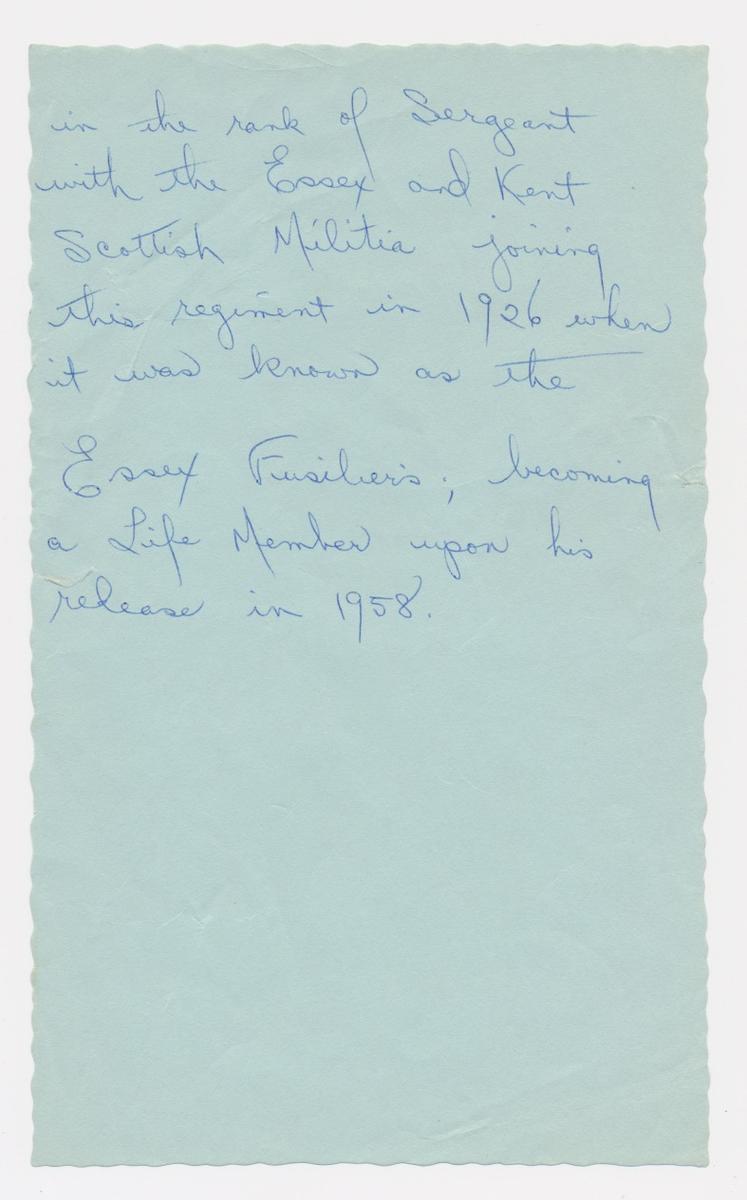 in the rank of Sergeant
with the Essex and Kent
Scottish Militia joining
this regiment in 1926 when
it was known as the
Essex Fusiliers; becoming
a Life Member upon his
release in 1958.